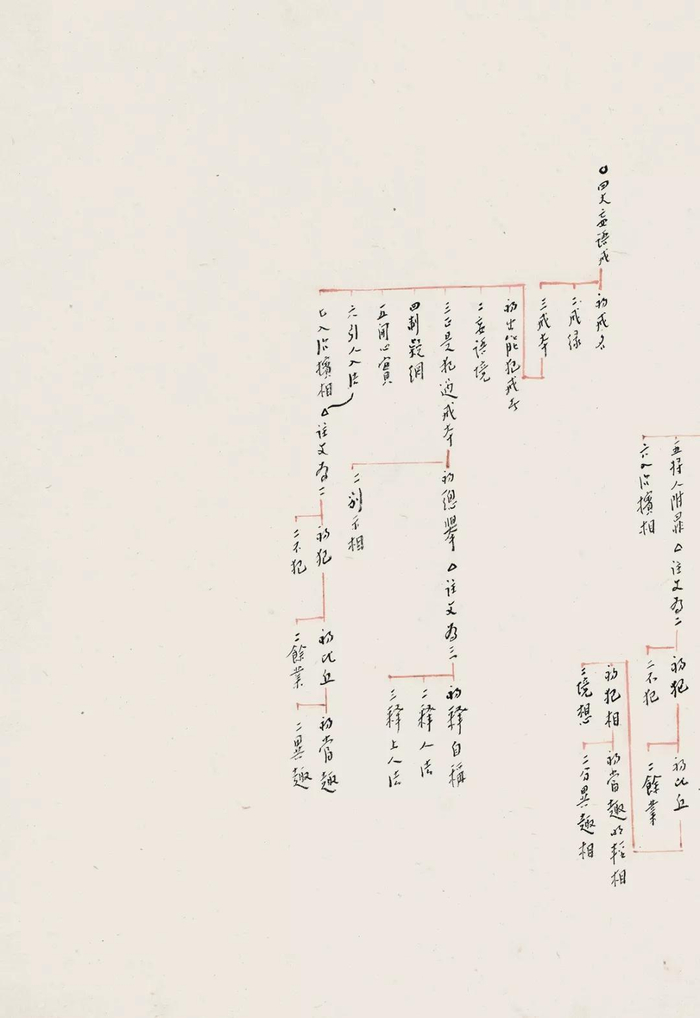 五擇人附罪 △注文為二
六人治擯相
初犯
二不犯
初比丘
二餘業
初犯相
二境想
初當趣明輕相
二分異趣相
四大妄語戒
初戒名
二戒緣
三戒本
初出能犯戒者
二妄語境
三正是犯過戒本
四制疑網
五開心實
六引人入法
七人治擯相 △注文為二
初總舉 △注文為三
二別示相
初釋自稱
二釋人法
三釋上人法
初犯
二不犯
初比丘
二餘業
初當趣
二異趣